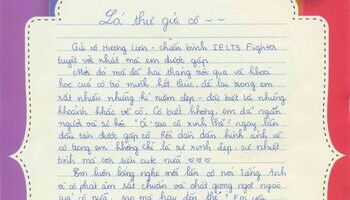 Lá thư gửi cô ~~
Gửi cô Hương Liên - chiến binh IELTS Fighter
tuyệt vời nhất mà em được gặp
Mới đó mà đã hai tháng trôi qua và khoá
học của cô trò mình kết thúc, để lại trong em
rất nhiều những kỉ niệm đẹp - đặc biệt là những
khoảnh khắc về cô. Cô biết không, em đã ngẩn
người và sự hỏi "Ai sao cô xinh thế" ngay lần
đầu tiên được gặp cô. Rồi dần dần hình ảnh về
cô trong em không chỉ là sự xinh đẹp, sự nhiệt
tình mà còn siêu cute nữa ♡♡♡
Em luôn lắng nghe mỗi lần cô nói tiếng Anh
vì cô phát âm rất chuẩn và phát giọng ngọt ngào
quá cô nữa, sao mà hay đến thế? Em yêu